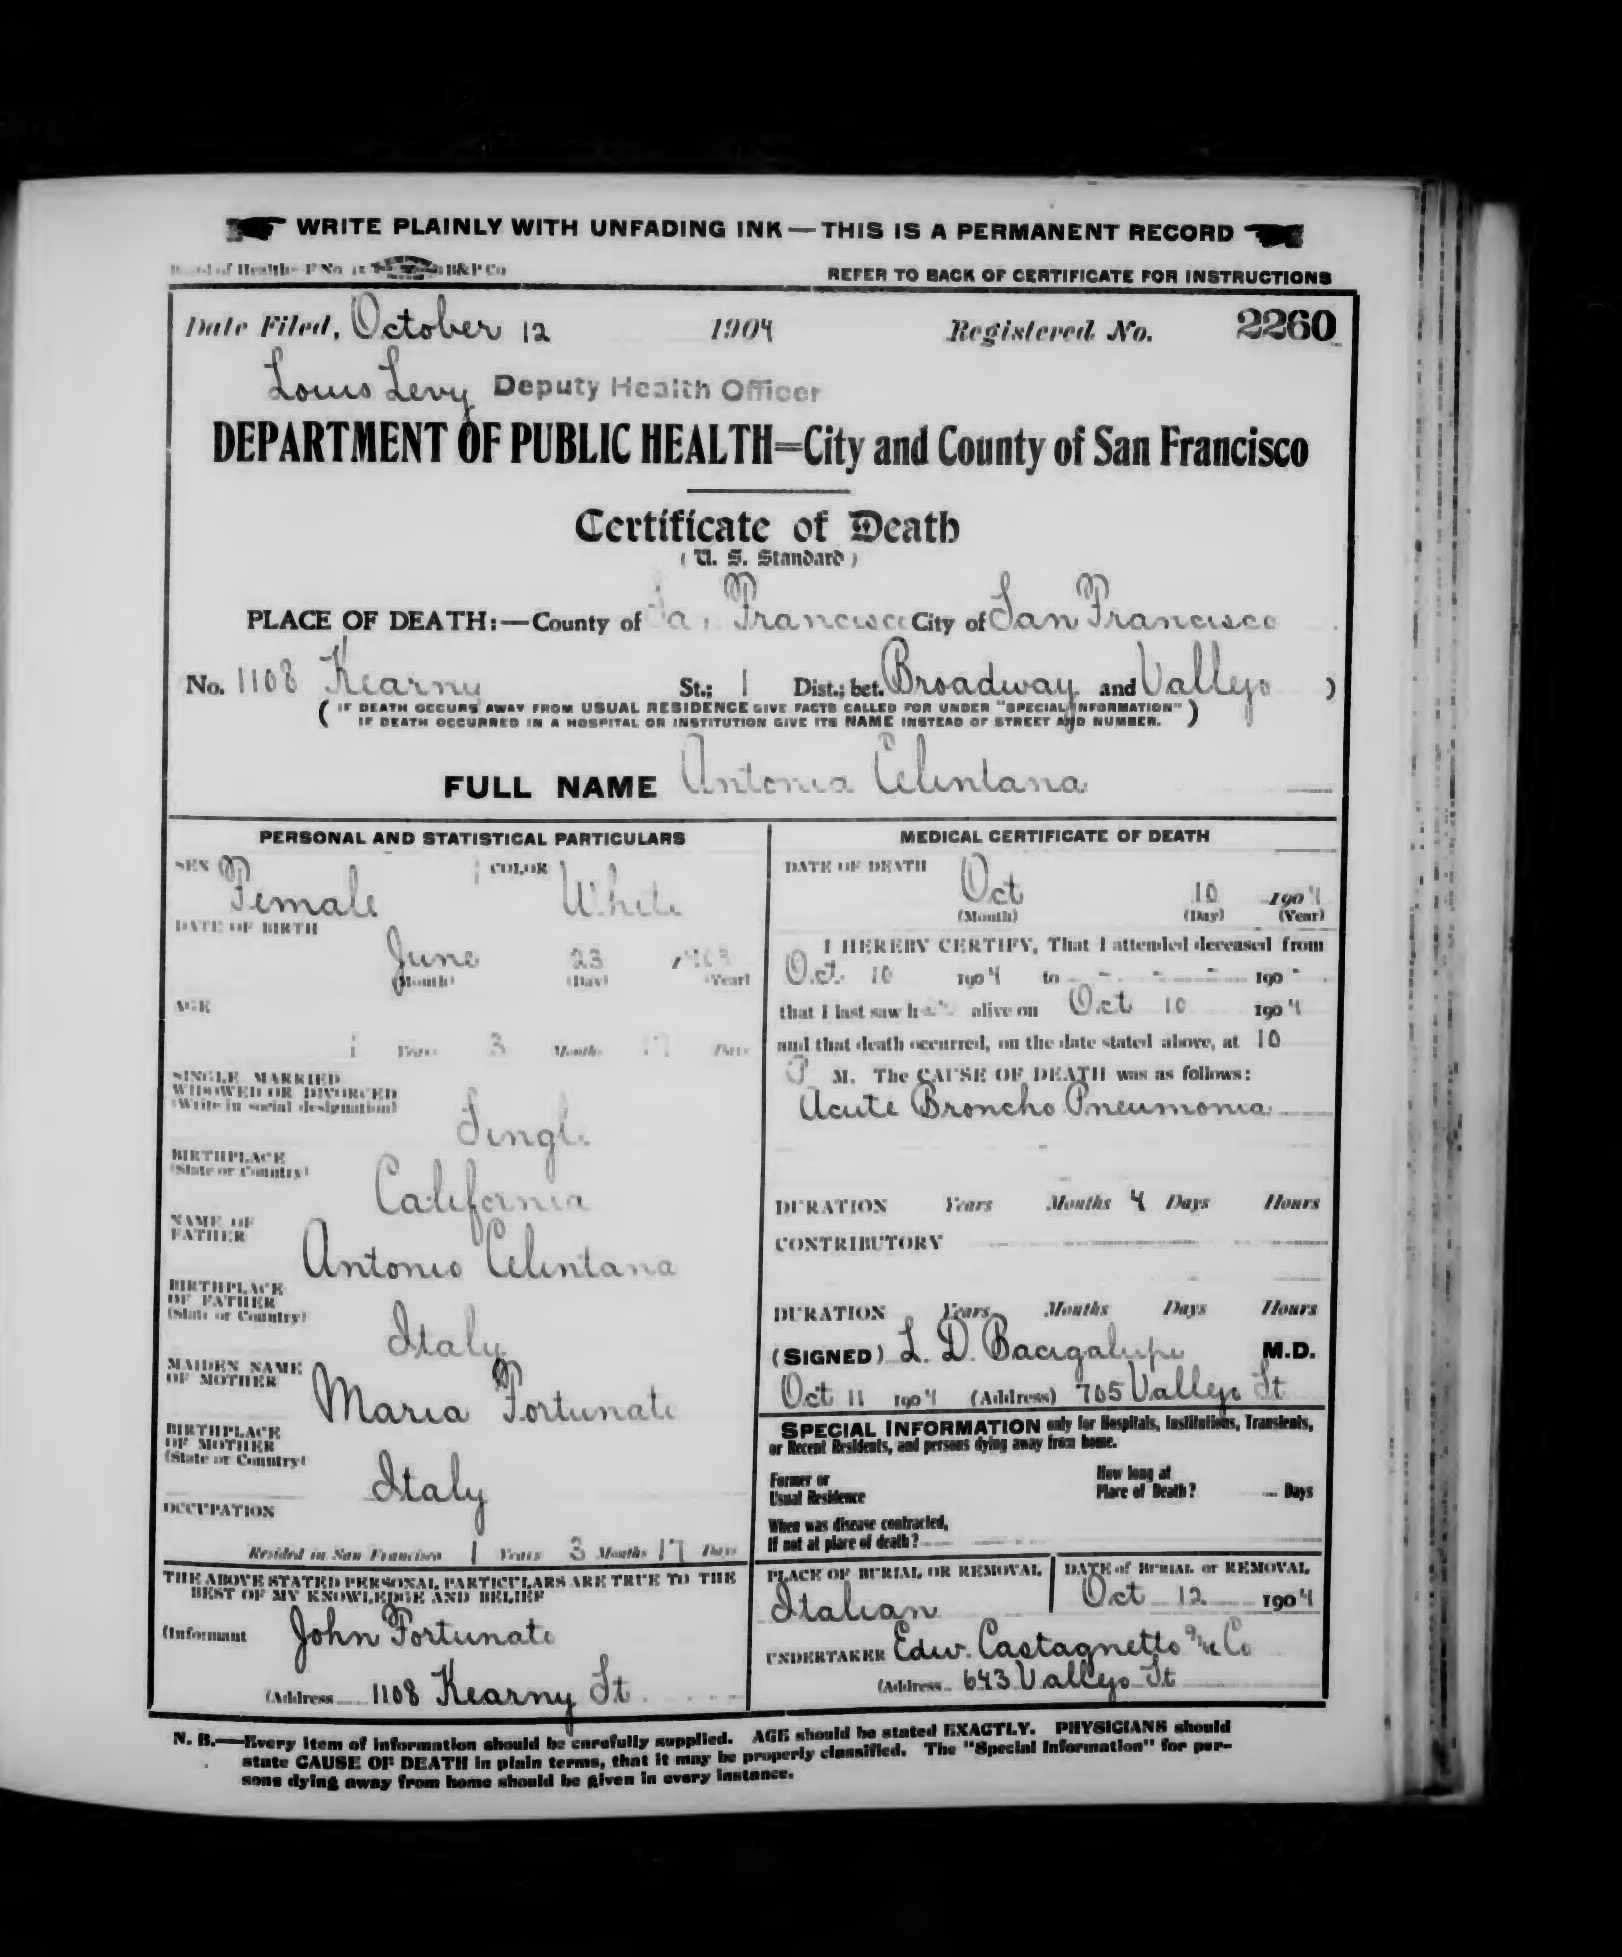 WRITE PLAINLY WITH UNFADING INK — THIS IS A PERMANENT RECORD
Board of Health B&P Co
REFER TO BACK OF CERTIFICATE FOR INSTRUCTIONS
Date Filed, October 12 1904 Registered No. 2260
Louis Levy Deputy Health Officer
DEPARTMENT OF PUBLIC HEALTH=City and County of San Francisco
Certificate of Death
(U. S. Standard)
PLACE OF DEATH:—County of San Francisco City of San Francisco
No. 1108 Kearny St.; 1 Dist.; bet. Broadway and Vallejo )
( IF DEATH OCCURS AWAY FROM USUAL RESIDENCE GIVE FACTS CALLED FOR UNDER "SPECIAL INFORMATION" )
IF DEATH OCCURRED IN A HOSPITAL OR INSTITUTION GIVE ITS NAME INSTEAD OF STREET AND NUMBER.
FULL NAME Antonia Celintana
PERSONAL AND STATISTICAL PARTICULARS
SEX Female COLOR White
DATE OF BIRTH
June 23 1903
(Month) (Day) (Year)
AGE
1 Years 3 Months 17 Days
SINGLE, MARRIED
WIDOWED OR DIVORCED
(Write in social designation)
Single
BIRTHPLACE
(State or Country)
California
NAME OF
FATHER
Antonio Celintana
BIRTHPLACE
OF FATHER
(State or Country)
Italy
MAIDEN NAME
OF MOTHER
Maria Fortunato
BIRTHPLACE
OF MOTHER
(State or Country)
Italy
OCCUPATION
Resided in San Francisco 1 Years 3 Months 17 Days
THE ABOVE STATED PERSONAL PARTICULARS ARE TRUE TO THE
BEST OF MY KNOWLEDGE AND BELIEF
(Informant John Fortunato
(Address 1108 Kearny St
MEDICAL CERTIFICATE OF DEATH
DATE OF DEATH
Oct 10 1904
(Month) (Day) (Year)
I HEREBY CERTIFY, That I attended deceased from
Oct 10 1904 to - - - 190 -
that I last saw her alive on Oct 10 1904
and that death occurred, on the date stated above, at 10
P M. The CAUSE OF DEATH was as follows:
Acute Broncho Pneumonia
DURATION Years Months 4 Days Hours
CONTRIBUTORY
DURATION Years Months Days Hours
(SIGNED) L. D. Bacigalupi M.D.
Oct 11 1904 (Address) 705 Vallejo St
SPECIAL INFORMATION only for Hospitals, Institutions, Transients,
or Recent Residents, and persons dying away from home.
Former or
Usual Residence
How long at
Place of Death? Days
When was disease contracted,
If not at place of death?
PLACE OF BURIAL OR REMOVAL
Italian
DATE of BURIAL or REMOVAL
Oct 12 1904
UNDERTAKER Edw. Castagnetto & Co
(Address 643 Vallejo St
N. B.—Every item of information should be carefully supplied. AGE should be stated EXACTLY. PHYSICIANS should
state CAUSE OF DEATH in plain terms, that it may be properly classified. The "Special Information" for per-
sons dying away from home should be given in every instance.